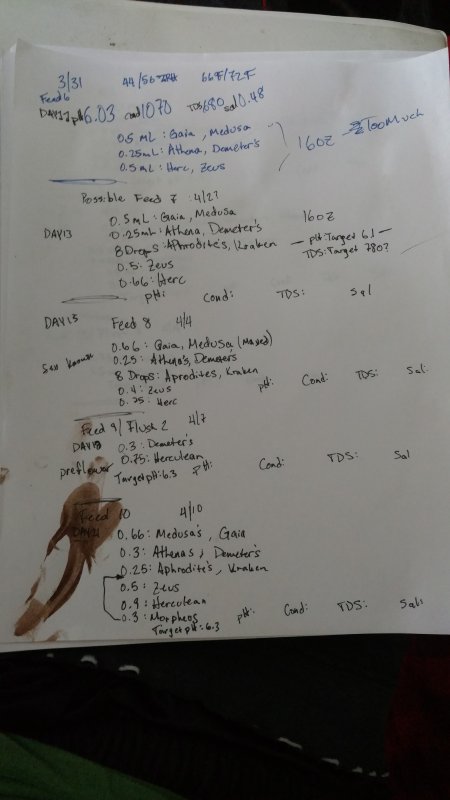 3/31 44/56 66F/72F
Feed 6
DAY12 pH 6.03 cond 1070 TDS 680 sal 0.48
0.5 mL: Gaia, Medusa
0.25mL: Athena, Demeter's
0.5 mL: Herc, Zeus
16oz
Too Much
Possible Feed 7 : 4/2?
0.5mL: Gaia, Medusa
DAY13 0.25mL: Athena, Demeter's
8 Drops: Aphrodite's, Kraken
0.5: Zeus
0.66: Herc
16oz
— pH: Target 6.1 —
TDS: Target 780?
pH: Cond: TDS: Sal
DAY15 Feed 8 4/4
0.66: Gaia, Medusa (Maxed)
0.25: Athena's, Demeter's
8 Drops: Aprodites, Kraken
0.4: Zeus
0.75: Herc
pH: Cond: TDS: Sal:
Feed 9/Flush 2 4/7
DAY18 0.3: Demeter's
preflower 0.75: Herculean
Target pH: 6.3 pH: Cond: TDS: Sal
Feed 10 4/10
DAY21 0.66: Medusa's, Gaia
0.3: Athenas, Demeter's
0.25: Aphrodite's, Kraken
0.5: Zeus
0.9: Herculean
0.3: Morpheos
Target pH: 6.3
pH: Cond: TDS: Sal: